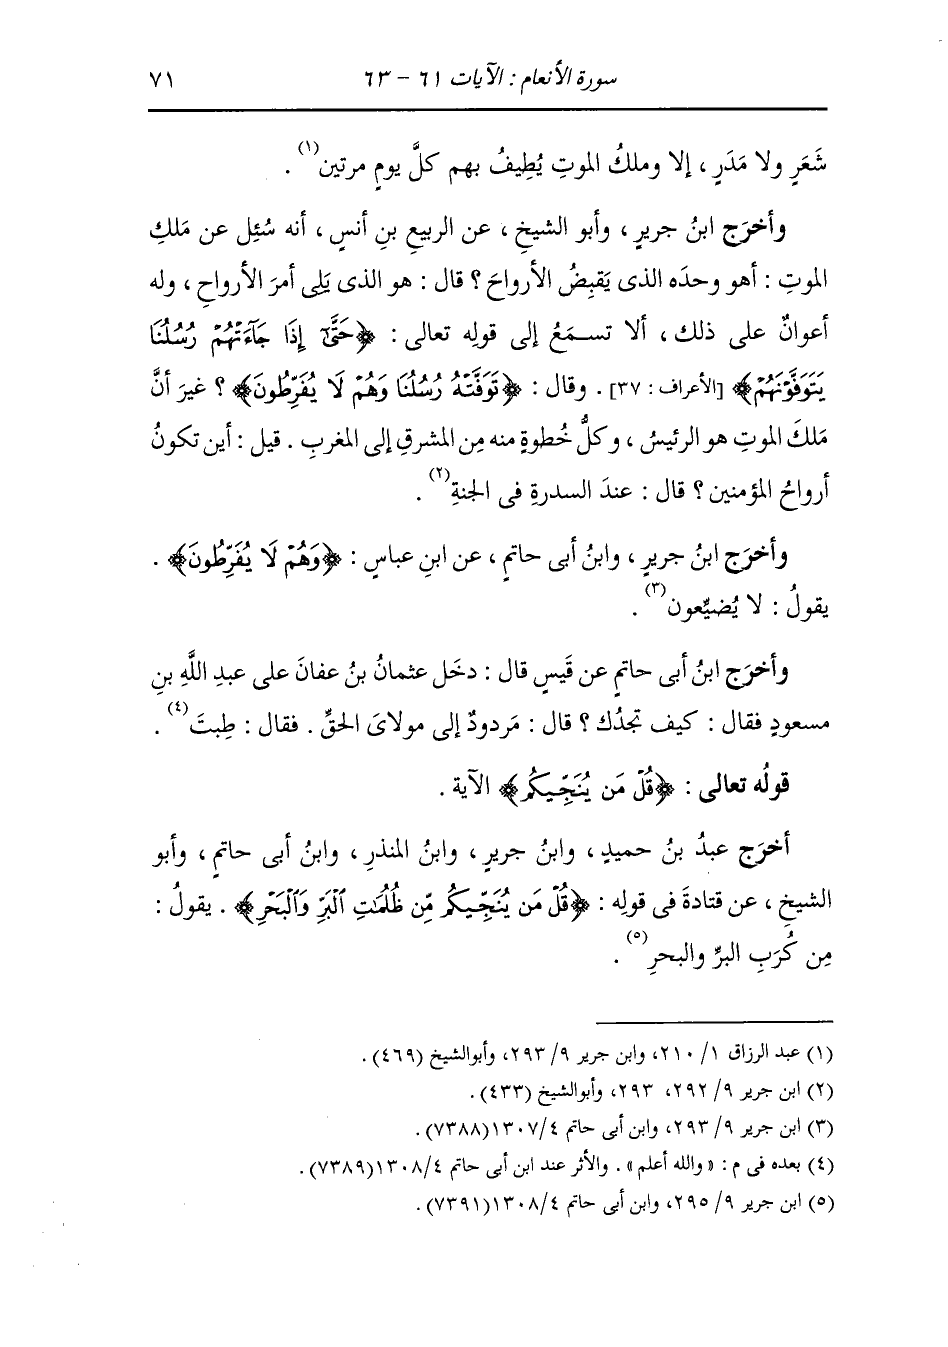 سورة الأنعام : الآيات ٦١ - ٦٣ ٧١
شَعَرٍ ولا مَدَرٍ ، إلا وملكُ الموتِ يُطِيفُ بهم كلَّ يومٍ مرتين(١) .
وأخرَج ابنُ جريرٍ ، وأبو الشيخِ ، عن الربيعِ بنِ أنسٍ ، أنه سُئِل عن مَلكِ
الموتِ : أهو وحدَه الذى يَقبِضُ الأرواحَ ؟ قال : هو الذى يَلِى أمرَ الأرواحِ ، وله
أعوانٌ على ذلك ، ألا تسمَعُ إلى قولِه تعالى : ﴿حَتَّىٰٓ إِذَا جَآءَتْهُمْ رُسُلُنَا
يَتَوَفَّوْنَهُمْ﴾ [الأعراف : ٣٧] . وقال : ﴿تَوَفَّتْهُ رُسُلُنَا وَهُمْ لَا يُفَرِّطُونَ﴾ ؟ غيرَ أنَّ
مَلكَ الموتِ هو الرئيسُ ، وكلُّ خُطوةٍ منه مِن المشرقِ إلى المغربِ . قيل : أين تكونُ
أرواحُ المؤمنين ؟ قال : عندَ السدرةِ فى الجنةِ(٢) .
وأخرَج ابنُ جريرٍ ، وابنُ أبى حاتمٍ ، عن ابنِ عباسٍ : ﴿وَهُمْ لَا يُفَرِّطُونَ﴾ .
يقولُ : لا يُضيِّعون(٣) .
وأخرَج ابنُ أبى حاتمٍ عن قَيسٍ قال : دخَل عثمانُ بنُ عفانَ على عبدِ اللَّهِ بنِ
مسعودٍ فقال : كيف تَجدُك ؟ قال : مَردودٌ إلى مولاىَ الحقِّ . فقال : طِبتَ(٤) .
قولُه تعالى : ﴿قُلْ مَن يُنَجِّيكُم﴾ الآية .
أخرَج عبدُ بنُ حميدٍ ، وابنُ جريرٍ ، وابنُ المنذرِ ، وابنُ أبى حاتمٍ ، وأبو
الشيخِ ، عن قتادةَ فى قولِه : ﴿قُلْ مَن يُنَجِّيكُم مِّن ظُلُمَٰتِ ٱلْبَرِّ وَٱلْبَحْرِ﴾ . يقولُ :
مِن كُرَبِ البرِّ والبحرِ(٥) .
(١) عبد الرزاق ١/ ٢١٠، وابن جرير ٩/ ٢٩٣، وأبوالشيخ (٤٦٩) .
(٢) ابن جرير ٩/ ٢٩٢، ٢٩٣، وأبوالشيخ (٤٣٣) .
(٣) ابن جرير ٩/ ٢٩٣، وابن أبى حاتم ١٣٠٧/٤ (٧٣٨٨) .
(٤) بعده فى م : « والله أعلم » . والأثر عند ابن أبى حاتم ١٣٠٨/٤ (٧٣٨٩) .
(٥) ابن جرير ٩/ ٢٩٥، وابن أبى حاتم ١٣٠٨/٤ (٧٣٩١) .